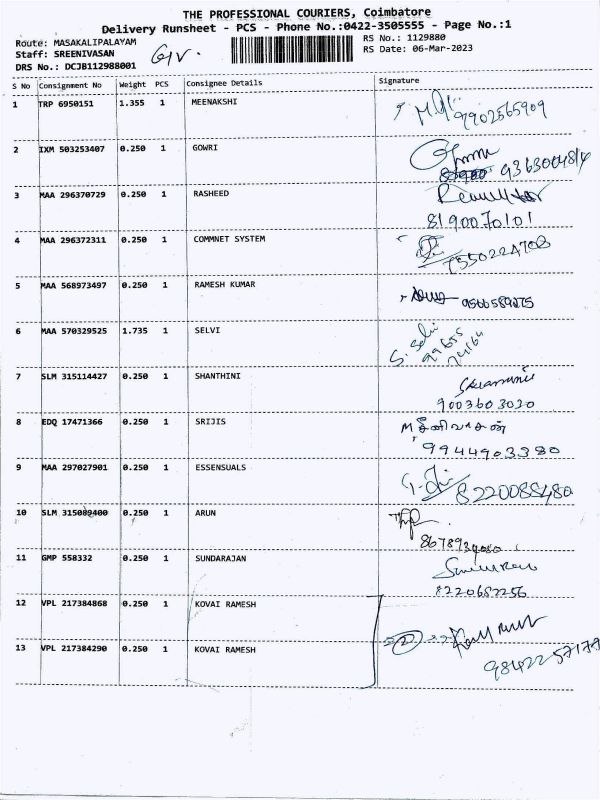 THE PROFESSIONAL COURIERS, Coimbatore
Delivery Runsheet - PCS - Phone No.:0422-3505555 - Page No.:1
Route: MASAKALIPALAYAM
RS No.: 1129880
Staff: SREENIVASAN
RS Date: 06-Mar-2023
DRS No.: DCJB112988001
S No Consignment No Weight PCS Consignee Details Signature
1 TRP 6950151 1.355 1 MEENAKSHI
9902565909
2 IXM 503253407 0.250 1 GOWRI
9363004814
3 MAA 296370729 0.250 1 RASHEED
8190070101
4 MAA 296372311 0.250 1 COMMNET SYSTEM
7550224703
5 MAA 568973497 0.250 1 RAMESH KUMAR
9566589275
6 MAA 570329525 1.735 1 SELVI
S. Selvi
99655
74164
7 SLM 315114427 0.250 1 SHANTHINI
9003603030
8 EDQ 17471366 0.250 1 SRIJIS
M சீனிவாசன்
9944903380
9 MAA 297027901 0.250 1 ESSENSUALS
8220088480
10 SLM 315089400 0.250 1 ARUN
11 GMP 558332 0.250 1 SUNDARAJAN
8220652256
12 VPL 217384868 0.250 1 KOVAI RAMESH
13 VPL 217384290 0.250 1 KOVAI RAMESH
9842257179